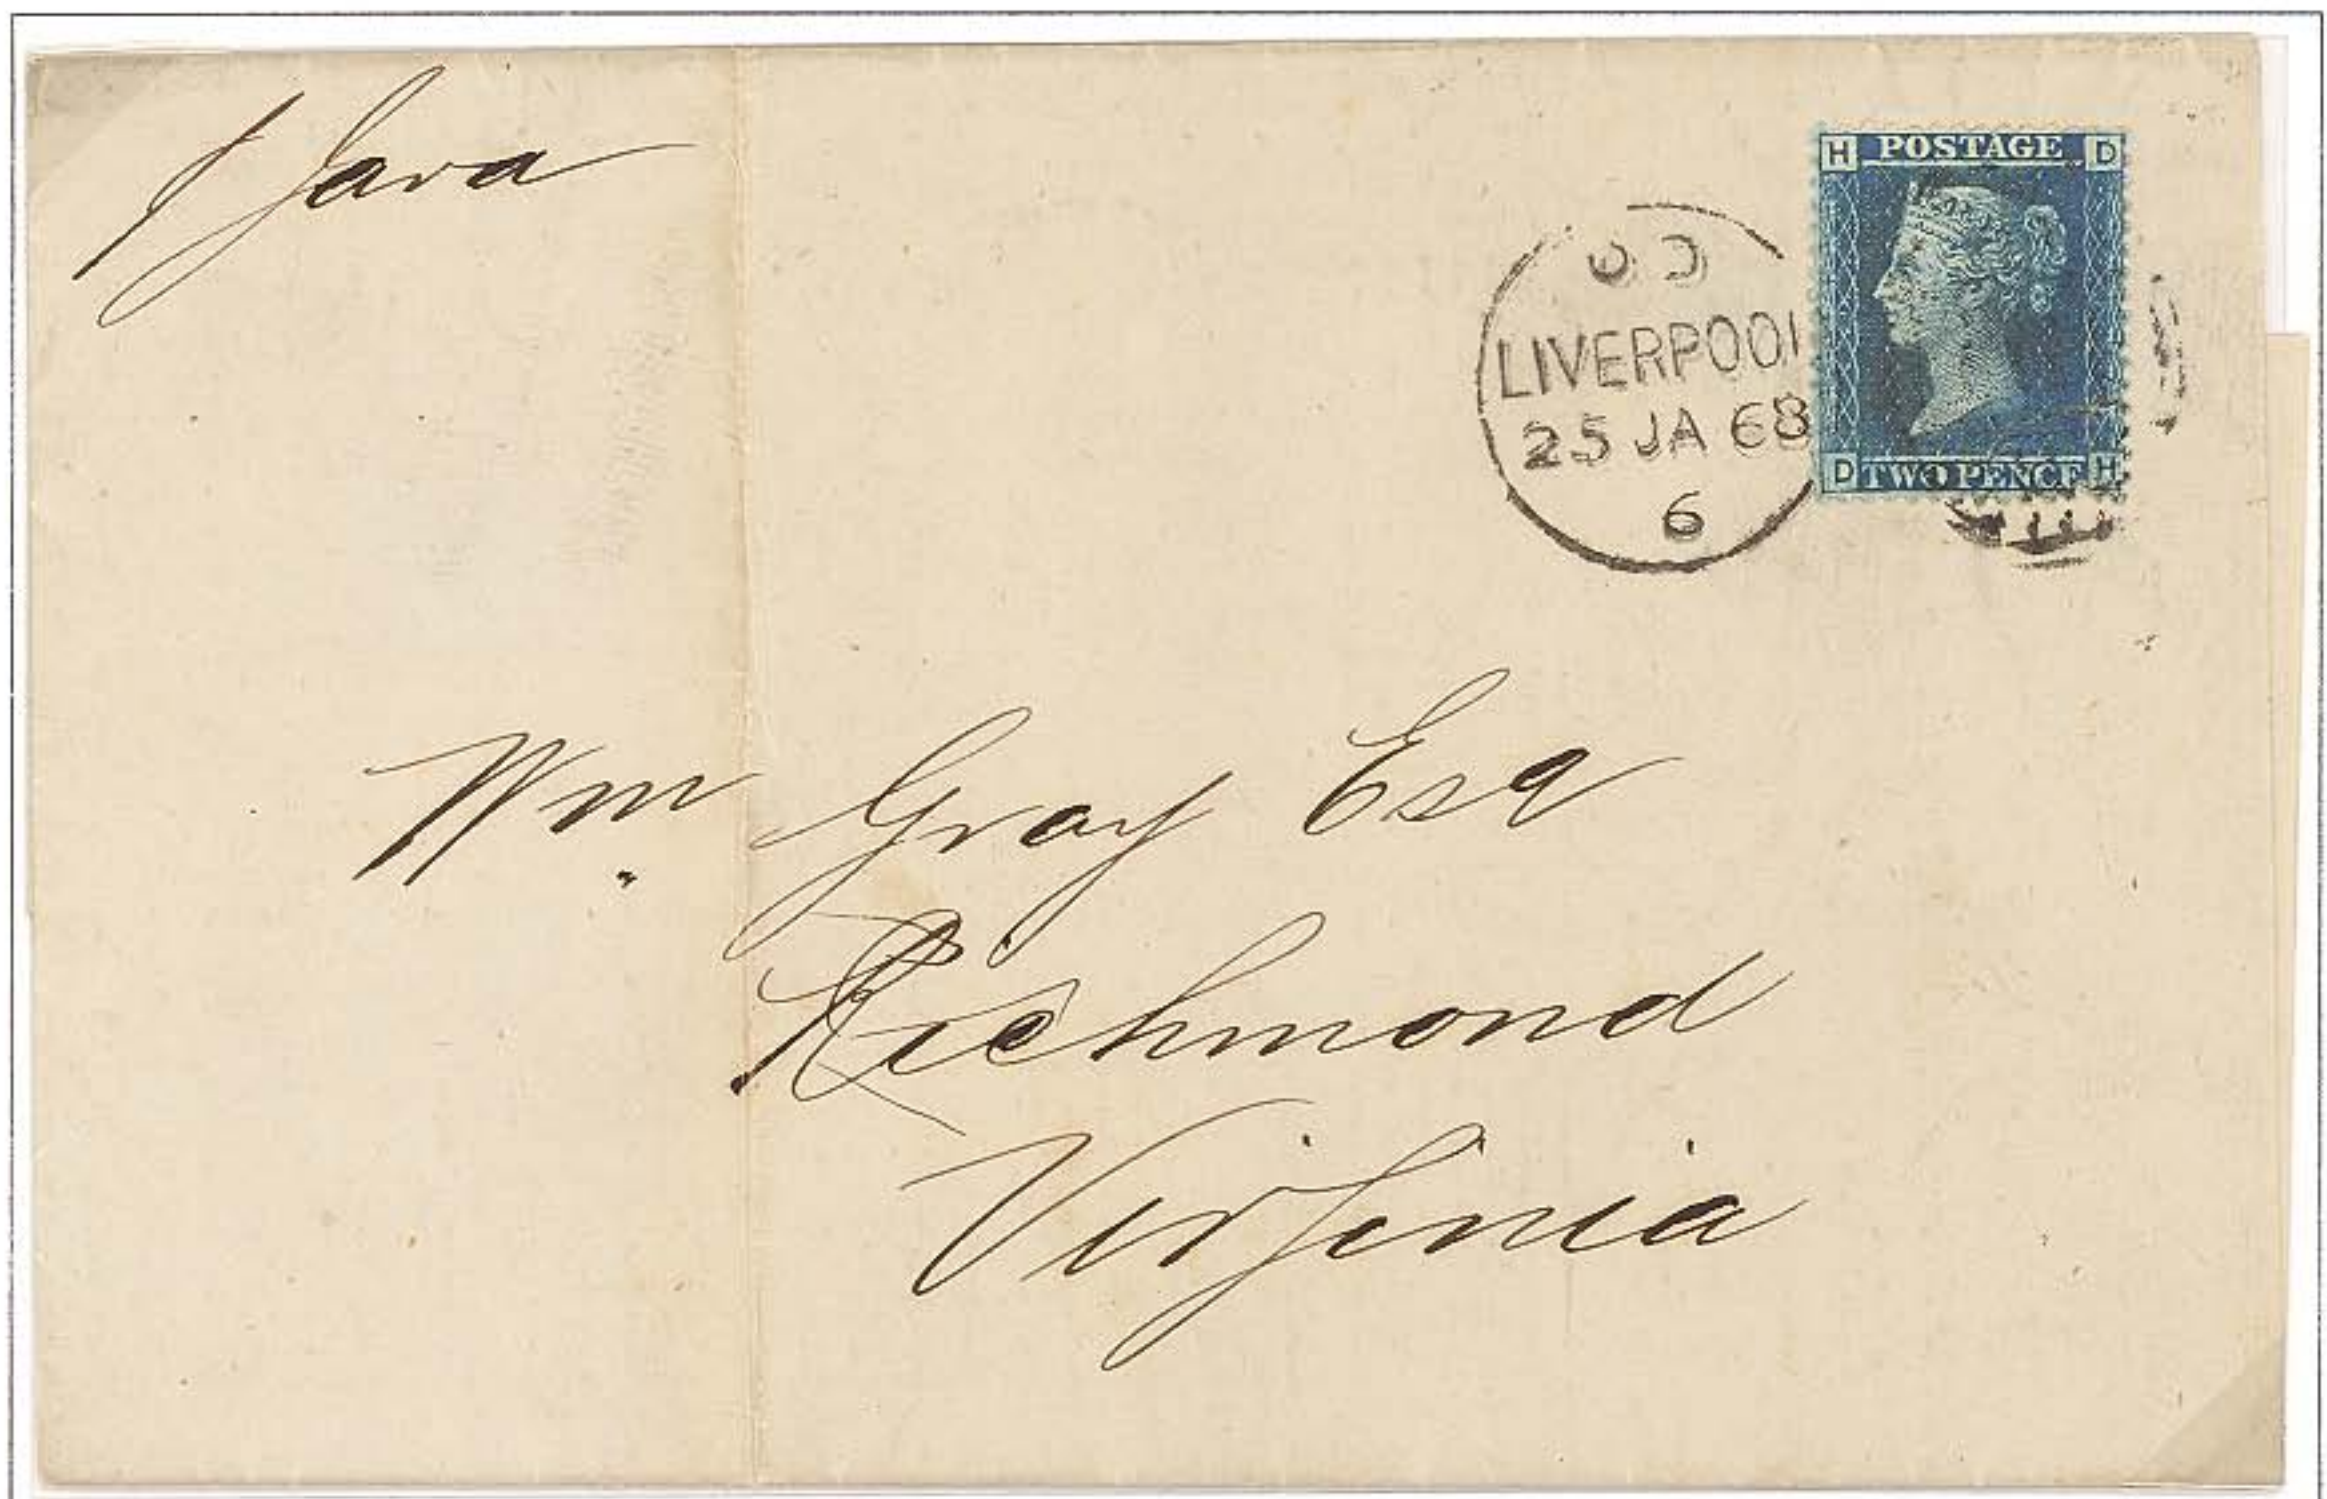 p Java
H POSTAGE D
D TWO PENCE H
LIVERPOOL
25 JA 68
6
Wm Gray Esq
Richmond
Virginia